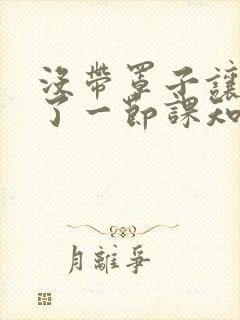 沒帶罩子讓
了一節課知
月離爭